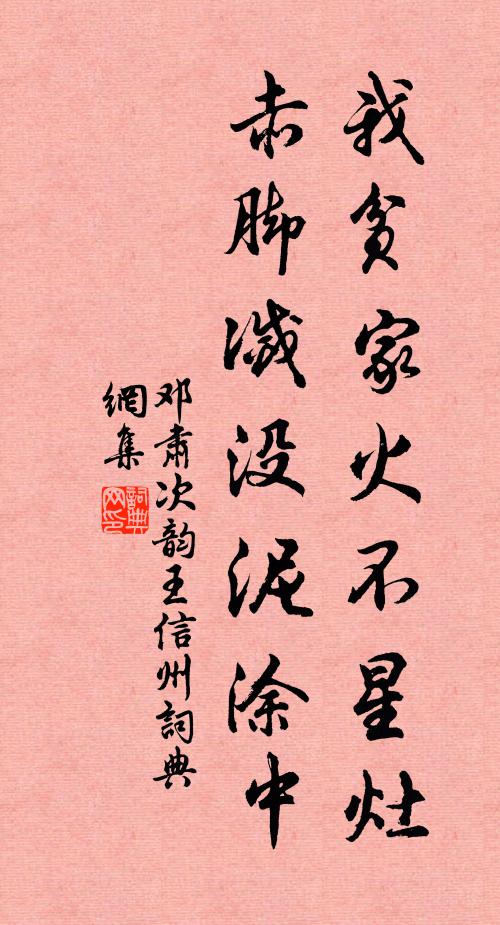 我贫家火不星灶
赤脚滅没泥涂中
邓肃次韵王信州詞典
網集
詞典
网印